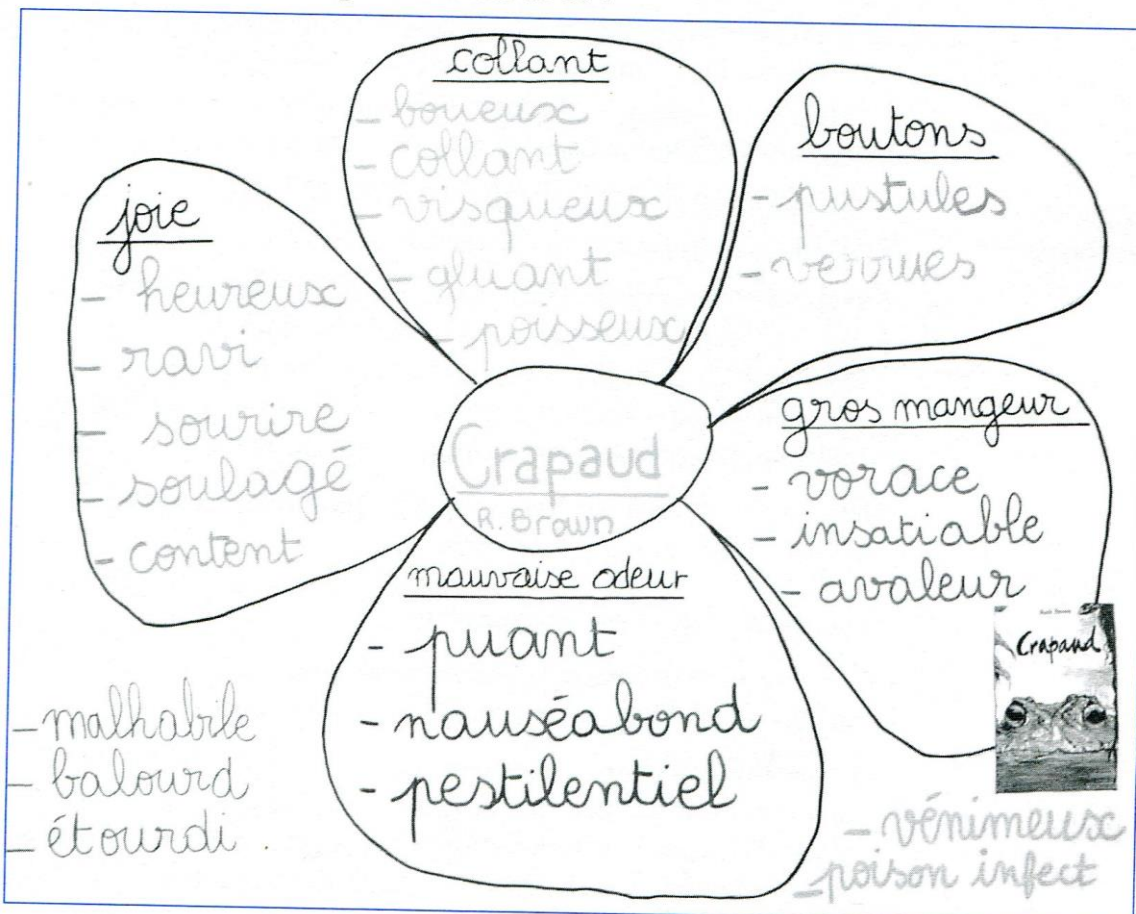 collant
- boueux
- collant
- visqueux
- gluant
- poisseux
boutons
- pustules
- verrues
joie
- heureux
- ravi
- sourire
- soulagé
- content
Crapaud
R. Brown
gros mangeur
- vorace
- insatiable
- avaleur
mauvaise odeur
- puant
- nauséabond
- pestilentiel
Crapaud
- malhabile
- balourd
- étourdi.
- vénimeux
- poison infect